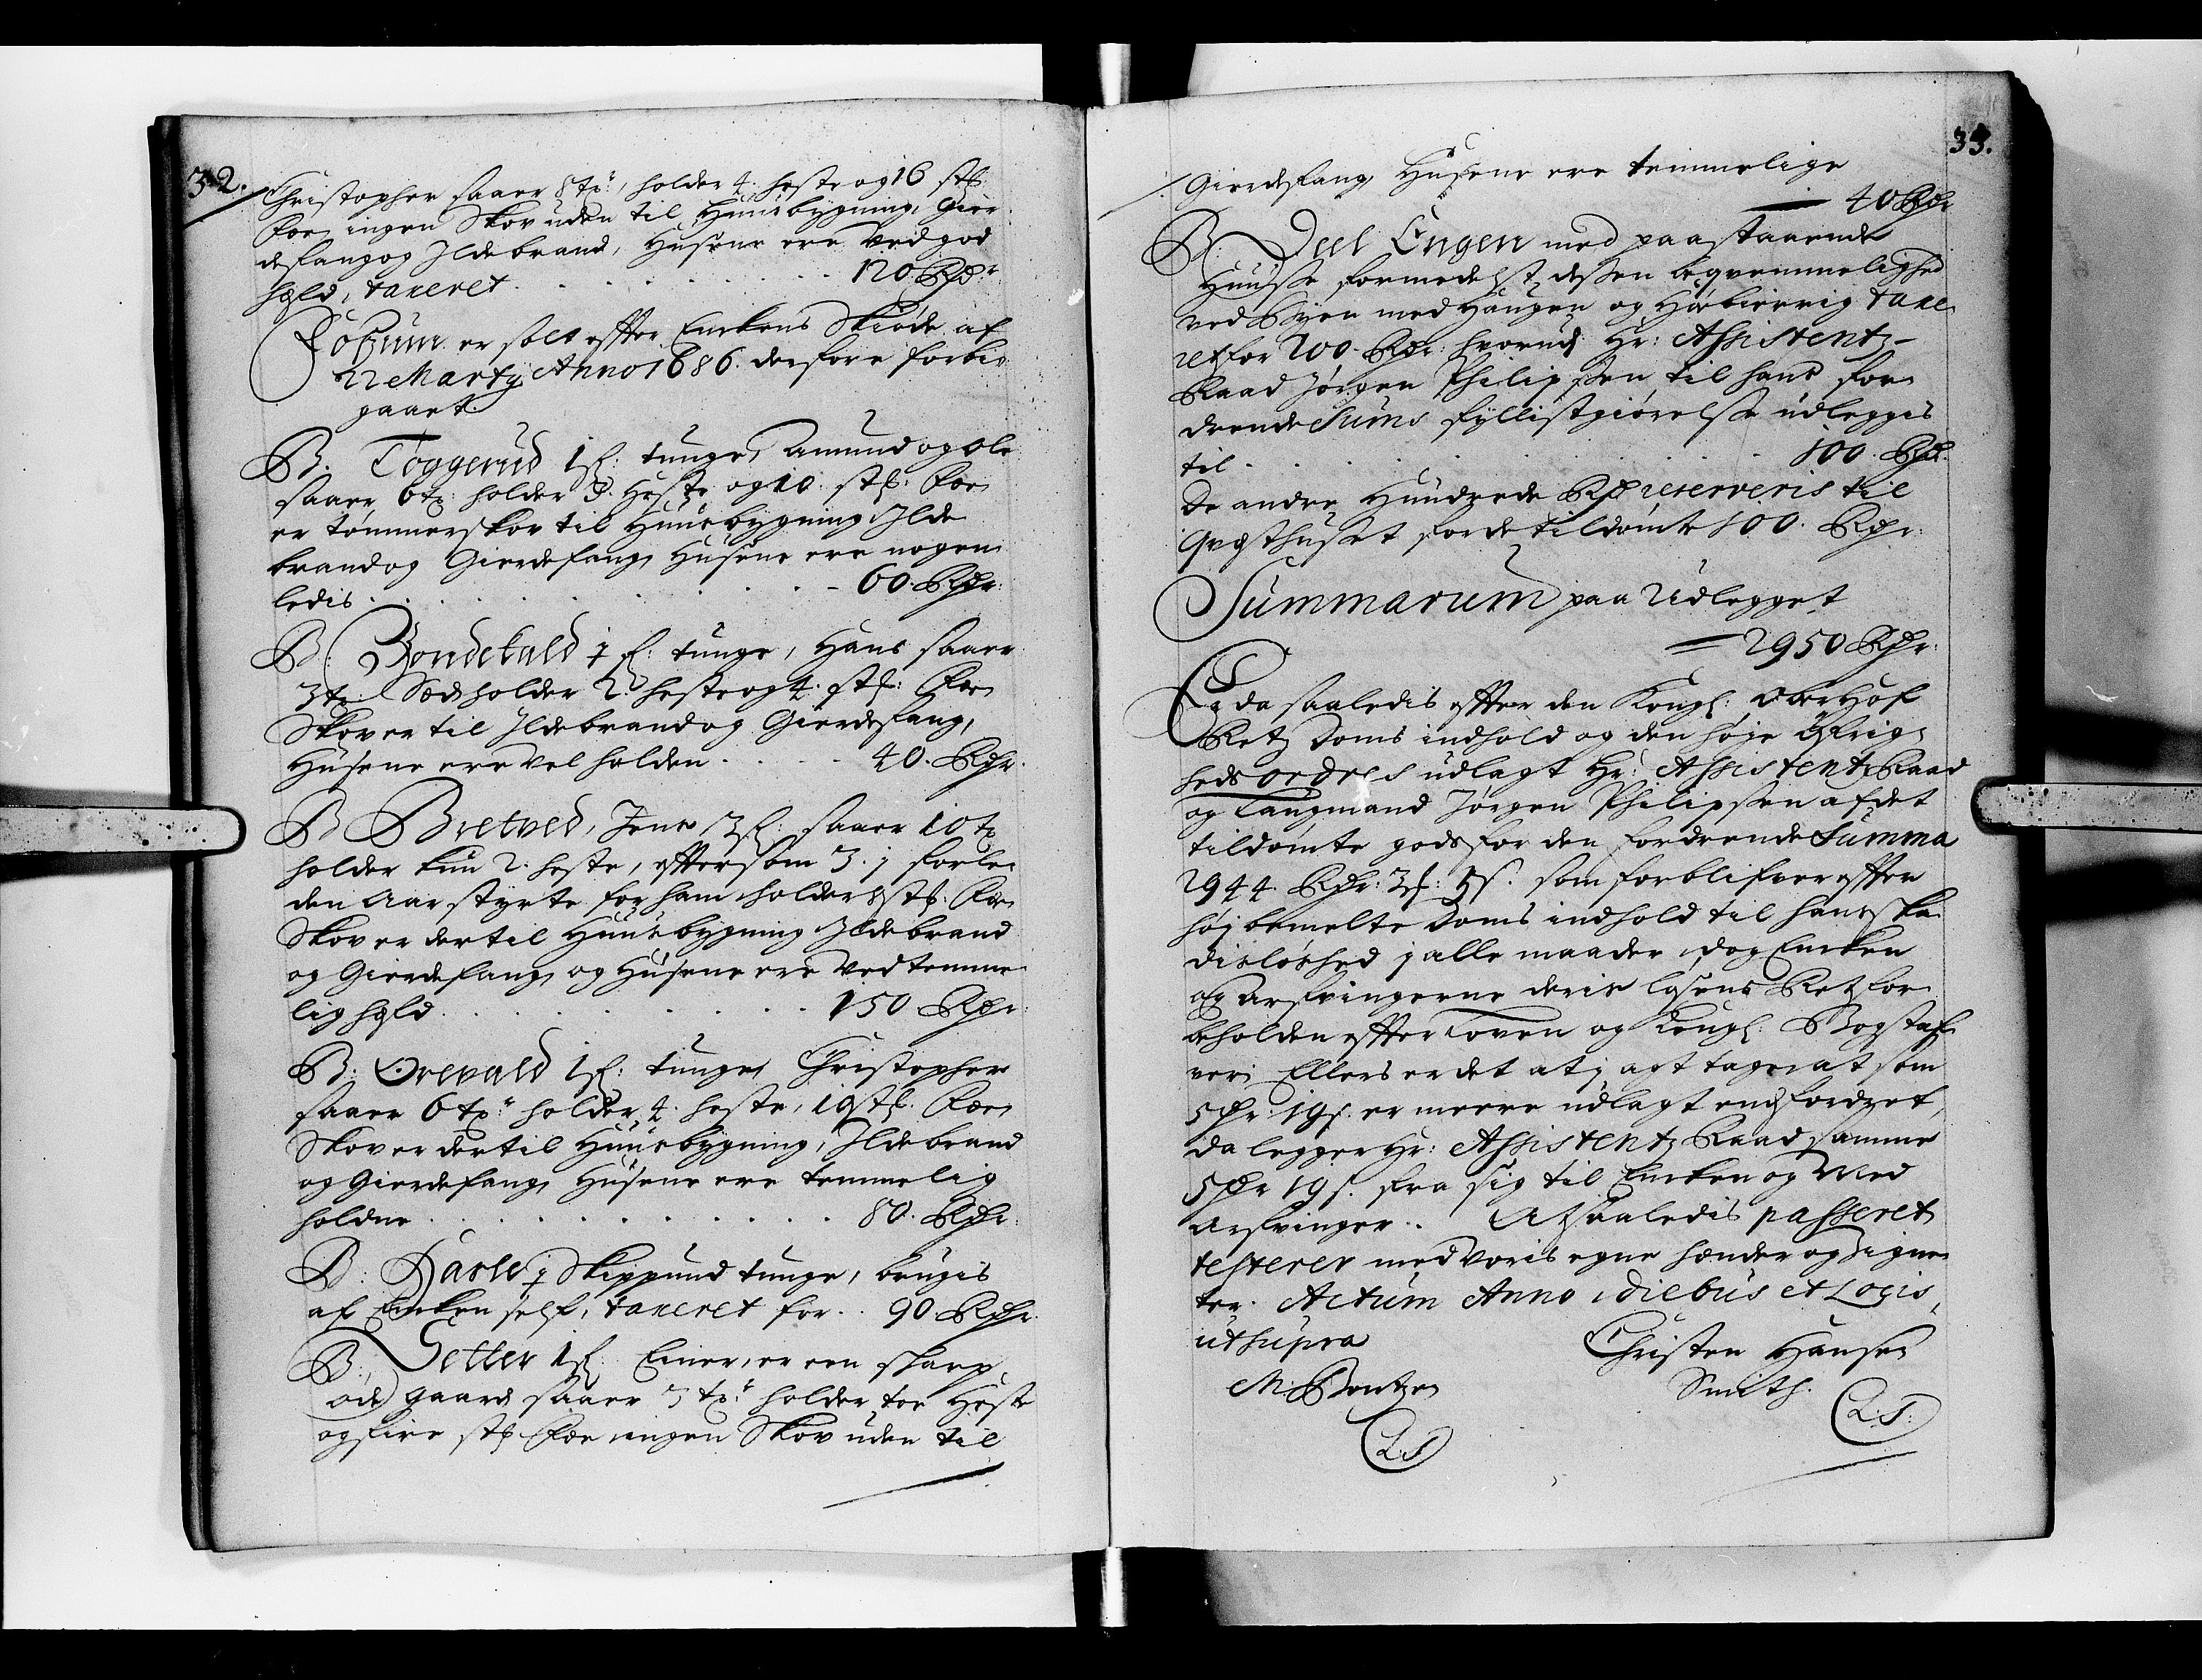 32.
Christopher saaer 8 tr:, holder 4 heste og 16 stk:
Foer, ingen Skov uden til Huusbygning, Gier
desfang og Ildebrand, Husene ere ved god
hæld, taxeret . . . . . . 120 Rdr
er solt efter Enckens Skiøde af
22 Marty Anno 1686. derfore forbi
gaaet.
B. Toggerud 1 s: tunge, Amund og Ole
saaer 6 tr: holder 3. Heste og 10 stk: Foer
er tømmerskov til Huusbygning Ilde
brand og Gierdesfang, Husene ere nogen
ledis . . . . . . 60. Rdr:
B: tunge, Hans saaer
3 tr: Sæd holder 2. heste og 4. stk: Foer
Skov er til Ildebrand og Gierdesfang,
Husene ere vel holden . . . . 40. Rdr.
B Bretved, Jens 3 s: saaer 10 tr
holder kun 2. heste, eftersom 3. j forle
den Aar styrte for ham holder stk: Foer
Skov er dertil Huusbygning Ildebrand
og Gierdesfang, og Husene ere ved temme
lig hæld . . . . . . 150 Rdr
B: Orevald 1 s: tunge, Christopher
saaer 6 tr: holder 4. heste, 19 stk: Foer,
Skov er dertil Huusbygning, Ildebrand
og Gierdesfang, Husene ere temmelig
holdne . . . . . . 80. Rdr:
B: Skippund tunge, brugis
af Encken self, taxeret for . . 90. Rdr.
B: Setter 1 s: Einer, er een skarp
øde gaard saaer 3 tr: holder toe Heste
og fire stk Foer ingen Skov uden til
33.
Gierdesfang, Husene ere temmelige
40 Rdr
B: Deel Engen med paastaaende
Huuse formedelst dessen beqvemmelighed
ved Byen med Haugen og taxe
ret for 200. Rdr: hvorudj Hr: Assistentz-
Raad Jørgen Philipsen til hans for
drende Sums fyllistgiørelse udlegges
til . . . . . . 100. Rdr.
De andre Hundrede Rdr reserveris til
qvæsthuset for de tildømte 100. Rdr:
Summarum paa Udlegget
= 2950 Rdr:
Og da saaledis efter den Kongl: Ober Hof
Retz Doms indhold og den høje Øfrig,
heds ordres udlagt Hr: Assistentz Raad
og Laugmand Jørgen Philipsen af det
tildømte gods for den fordrende Summa
2944. Rdr: 3 s. som forblifver efter
højbemelte Doms indhold til hans ska
disløshed j alle maader, dog Encken
og Arfvingerne deris løsens Ret for
beholden efter Loven og Kongl:
Ellers er det at j agt tage at som
5 Rdr: 19 s. er meere udlagt end fordret,
da legger Hr: Assistentz Raad samme
5 Rdr 19 s. fra sig til Encken og Med
Arfvinger. At saaledis passeret
testerer med voris egne hænder og Signe
ter. Actum Anno, diebus et Locis,
ut supra
Christen Hansen
M: Bentzen
Smith.
L:S:
L:S